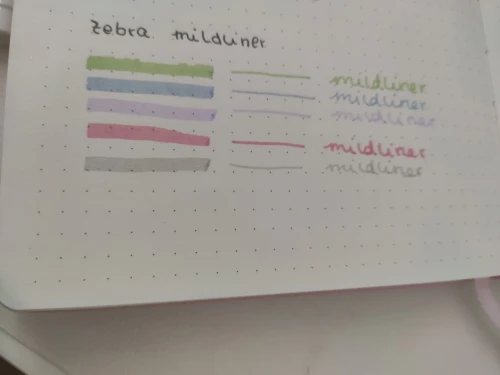 zebra mildliner
mildliner
mildliner
mildliner
mildliner
mildliner